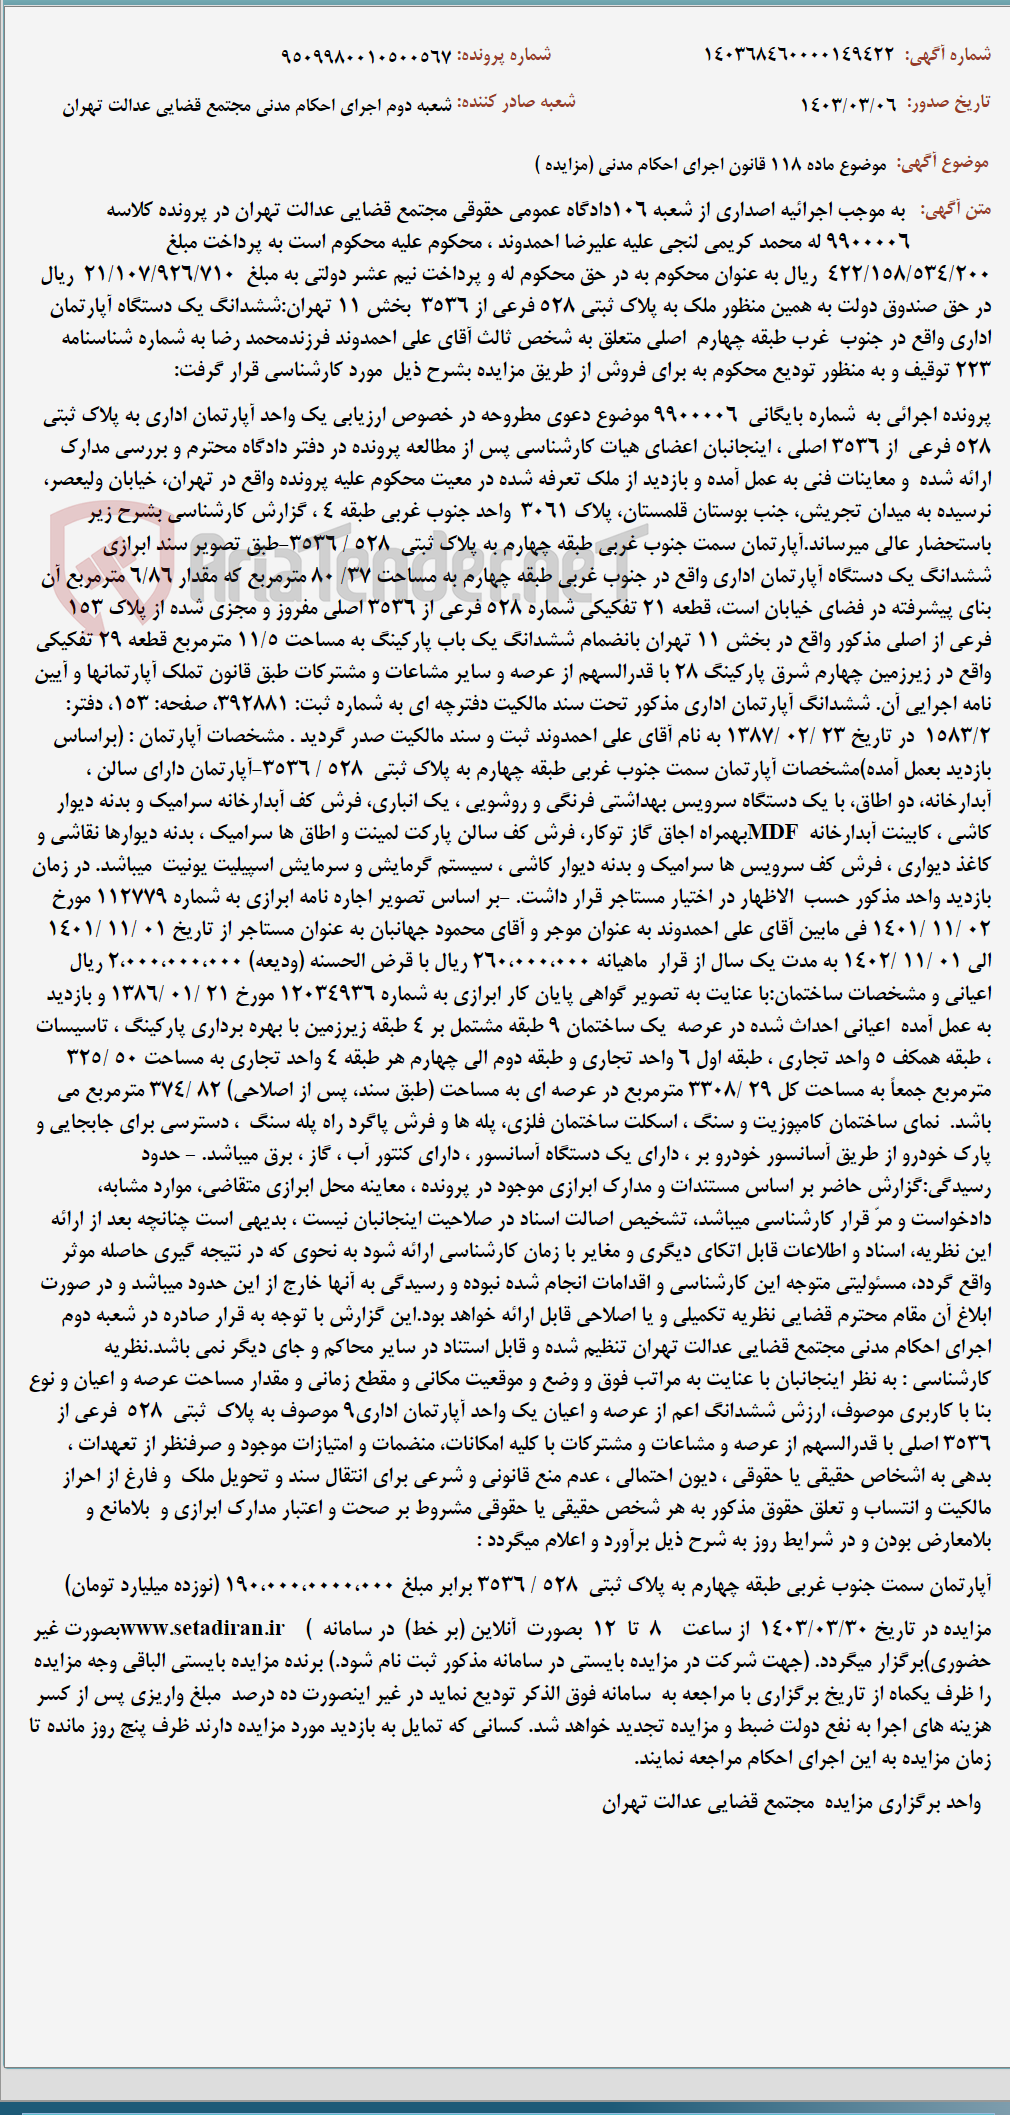 شماره آگهی: ۱۴۰۳۶۸۴۶۰۰۰۰۱۴۹۴۲۲ شماره پرونده: ۹۵۰۹۹۸۰۰۱۰۵۰۰۵۶۷
تاریخ صدور: ۱۴۰۳/۰۳/۰۶ شعبه صادر کننده: شعبه دوم اجرای احکام مدنی مجتمع قضایی عدالت تهران
موضوع آگهی: موضوع ماده ۱۱۸ قانون اجرای احکام مدنی (مزایده )
متن آگهی: به موجب اجرائیه اصداری از شعبه ۱۰۶دادگاه عمومی حقوقی مجتمع قضایی عدالت تهران در پرونده کلاسه
۹۹۰۰۰۰۶ له محمد کریمی لنجی علیه علیرضا احمدوند ، محکوم علیه محکوم است به پرداخت مبلغ
۴۲۲/۱۵۸/۵۳۴/۲۰۰ ریال به عنوان محکوم به در حق محکوم له و پرداخت نیم عشر دولتی به مبلغ ۲۱/۱۰۷/۹۲۶/۷۱۰ ریال
در حق صندوق دولت به همین منظور ملک به پلاک ثبتی ۵۲۸ فرعی از ۳۵۳۶ بخش ۱۱ تهران:ششدانگ یک دستگاه آپارتمان
اداری واقع در جنوب غرب طبقه چهارم اصلی متعلق به شخص ثالث آقای علی احمدوند فرزندمحمد رضا به شماره شناسنامه
۲۲۳ توقیف و به منظور تودیع محکوم به برای فروش از طریق مزایده بشرح ذیل مورد کارشناسی قرار گرفت:
پرونده اجرائی به شماره بایگانی ۹۹۰۰۰۰۶ موضوع دعوی مطروحه در خصوص ارزیابی یک واحد آپارتمان اداری به پلاک ثبتی
۵۲۸ فرعی از ۳۵۳۶ اصلی ، اینجانبان اعضای هیات کارشناسی پس از مطالعه پرونده در دفتر دادگاه محترم و بررسی مدارک
ارائه شده و معاینات فنی به عمل آمده و بازدید از ملک تعرفه شده در معیت محکوم علیه پرونده واقع در تهران، خیابان ولیعصر،
نرسیده به میدان تجریش، جنب بوستان قلمستان، پلاک ۳۰۶۱ واحد جنوب غربی طبقه ۴ ، گزارش کارشناسی بشرح زیر
باستحضار عالی میرساند.آپارتمان سمت جنوب غربی طبقه چهارم به پلاک ثبتی ۵۲۸ / ۳۵۳۶–طبق تصویر سند ابرازی
ششدانگ یک دستگاه آپارتمان اداری واقع در جنوب غربی طبقه چهارم به مساحت ۳۷/ ۸۰ مترمربع که مقدار ۶/۸۶ مترمربع آن
بنای پیشرفته در فضای خیابان است، قطعه ۲۱ تفکیکی شماره ۵۲۸ فرعی از ۳۵۳۶ اصلی مفروز و مجزی شده از پلاک ۱۵۳
فرعی از اصلی مذکور واقع در بخش ۱۱ تهران بانضمام ششدانگ یک باب پارکینگ به مساحت ۱۱/۵ مترمربع قطعه ۲۹ تفکیکی
واقع در زیرزمین چهارم شرق پارکینگ ۲۸ با قدرالسهم از عرصه و سایر مشاعات و مشترکات طبق قانون تملک آپارتمانها و آیین
نامه اجرایی آن. ششدانگ آپارتمان اداری مذکور تحت سند مالکیت دفترچه ای به شماره ثبت: ۳۹۲۸۸۱، صفحه: ۱۵۳، دفتر:
۱۵۸۳/۲ در تاریخ ۲۳ /۰۲ /۱۳۸۷ به نام آقای علی احمدوند ثبت و سند مالکیت صدر گردید . مشخصات آپارتمان : (براساس
بازدید بعمل آمده)مشخصات آپارتمان سمت جنوب غربی طبقه چهارم به پلاک ثبتی ۵۲۸ / ۳۵۳۶–آپارتمان دارای سالن ،
آبدارخانه، دو اطاق، با یک دستگاه سرویس بهداشتی فرنگی و روشویی ، یک انباری، فرش کف آبدارخانه سرامیک و بدنه دیوار
کاشی ، کابینت آبدارخانه MDFبهمراه اجاق گاز توکار، فرش کف سالن پارکت لمینت و اطاق ها سرامیک ، بدنه دیوارها نقاشی و
کاغذ دیواری ، فرش کف سرویس ها سرامیک و بدنه دیوار کاشی ، سیستم گرمایش و سرمایش اسپیلیت یونیت میباشد. در زمان
بازدید واحد مذکور حسب الاظهار در اختیار مستاجر قرار داشت. –بر اساس تصویر اجاره نامه ابرازی به شماره ۱۱۲۷۷۹ مورخ
۰۲ /۱۱ /۱۴۰۱ فی مابین آقای علی احمدوند به عنوان موجر و آقای محمود جهانبان به عنوان مستاجر از تاریخ ۰۱ /۱۱ /۱۴۰۱
الی ۰۱ /۱۱ /۱۴۰۲ به مدت یک سال از قرار ماهیانه ۲۶۰،۰۰۰،۰۰۰ ریال با قرض الحسنه (ودیعه) ۲،۰۰۰،۰۰۰،۰۰۰ ریال
اعیانی و مشخصات ساختمان:با عنایت به تصویر گواهی پایان کار ابرازی به شماره ۱۲۰۳۴۹۳۶ مورخ ۲۱ /۰۱ /۱۳۸۶ و بازدید
به عمل آمده اعیانی احداث شده در عرصه یک ساختمان ۹ طبقه مشتمل بر ۴ طبقه زیرزمین با بهره برداری پارکینگ ، تاسیسات
، طبقه همکف ۵ واحد تجاری ، طبقه اول ۶ واحد تجاری و طبقه دوم الی چهارم هر طبقه ۴ واحد تجاری به مساحت ۵۰ /۳۲۵
مترمربع جمعاً به مساحت کل ۲۹ /۳۳۰۸ مترمربع در عرصه ای به مساحت (طبق سند، پس از اصلاحی) ۸۲ /۳۷۴ مترمربع می
باشد. نمای ساختمان کامپوزیت و سنگ ، اسکلت ساختمان فلزی، پله ها و فرش پاگرد راه پله سنگ ، دسترسی برای جابجایی و
پارک خودرو از طریق آسانسور خودرو بر ، دارای یک دستگاه آسانسور ، دارای کنتور آب ، گاز ، برق میباشد. – حدود
رسیدگی:گزارش حاضر بر اساس مستندات و مدارک ابرازی موجود در پرونده ، معاینه محل ابرازی متقاضی، موارد مشابه،
دادخواست و مرّ قرار کارشناسی میباشد، تشخیص اصالت اسناد در صلاحیت اینجانبان نیست ، بدیهی است چنانچه بعد از ارائه
این نظریه، اسناد و اطلاعات قابل اتکای دیگری و مغایر با زمان کارشناسی ارائه شود به نحوی که در نتیجه گیری حاصله موثر
واقع گردد، مسئولیتی متوجه این کارشناسی و اقدامات انجام شده نبوده و رسیدگی به آنها خارج از این حدود میباشد و در صورت
ابلاغ آن مقام محترم قضایی نظریه تکمیلی و یا اصلاحی قابل ارائه خواهد بود.این گزارش با توجه به قرار صادره در شعبه دوم
اجرای احکام مدنی مجتمع قضایی عدالت تهران تنظیم شده و قابل استناد در سایر محاکم و جای دیگر نمی باشد.نظریه
کارشناسی : به نظر اینجانبان با عنایت به مراتب فوق و وضع و موقعیت مکانی و مقطع زمانی و مقدار مساحت عرصه و اعیان و نوع
بنا با کاربری موصوف، ارزش ششدانگ اعم از عرصه و اعیان یک واحد آپارتمان اداری۹ موصوف به پلاک ثبتی ۵۲۸ فرعی از
۳۵۳۶ اصلی با قدرالسهم از عرصه و مشاعات و مشترکات با کلیه امکانات، منضمات و امتیازات موجود و صرفنظر از تعهدات ،
بدهی به اشخاص حقیقی یا حقوقی ، دیون احتمالی ، عدم منع قانونی و شرعی برای انتقال سند و تحویل ملک و فارغ از احراز
مالکیت و انتساب و تعلق حقوق مذکور به هر شخص حقیقی یا حقوقی مشروط بر صحت و اعتبار مدارک ابرازی و بلامانع و
بلامعارض بودن و در شرایط روز به شرح ذیل برآورد و اعلام میگردد :
آپارتمان سمت جنوب غربی طبقه چهارم به پلاک ثبتی ۵۲۸ / ۳۵۳۶ برابر مبلغ ۱۹۰،۰۰۰،۰۰۰۰،۰۰۰ (نوزده میلیارد تومان)
مزایده در تاریخ ۱۴۰۳/۰۳/۳۰ از ساعت ۸ تا ۱۲ بصورت آنلاین (بر خط) در سامانه ( www.setadiran.irبصورت غیر
حضوری)برگزار میگردد. (جهت شرکت در مزایده بایستی در سامانه مذکور ثبت نام شود.) برنده مزایده بایستی الباقی وجه مزایده
را ظرف یکماه از تاریخ برگزاری با مراجعه به سامانه فوق الذکر تودیع نماید در غیر اینصورت ده درصد مبلغ واریزی پس از کسر
هزینه های اجرا به نفع دولت ضبط و مزایده تجدید خواهد شد. کسانی که تمایل به بازدید مورد مزایده دارند ظرف پنج روز مانده تا
زمان مزایده به این اجرای احکام مراجعه نمایند.
واحد برگزاری مزایده مجتمع قضایی عدالت تهران
AriaTender.neT